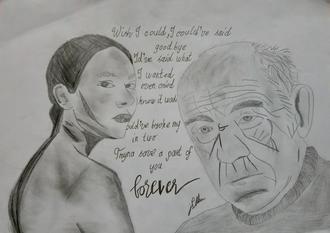 Wish I could, I could've said
goodbye
I'd've said what
I wanted
even cried
knew it was
could've broke my
in two
Tryna save a part of
you
forever